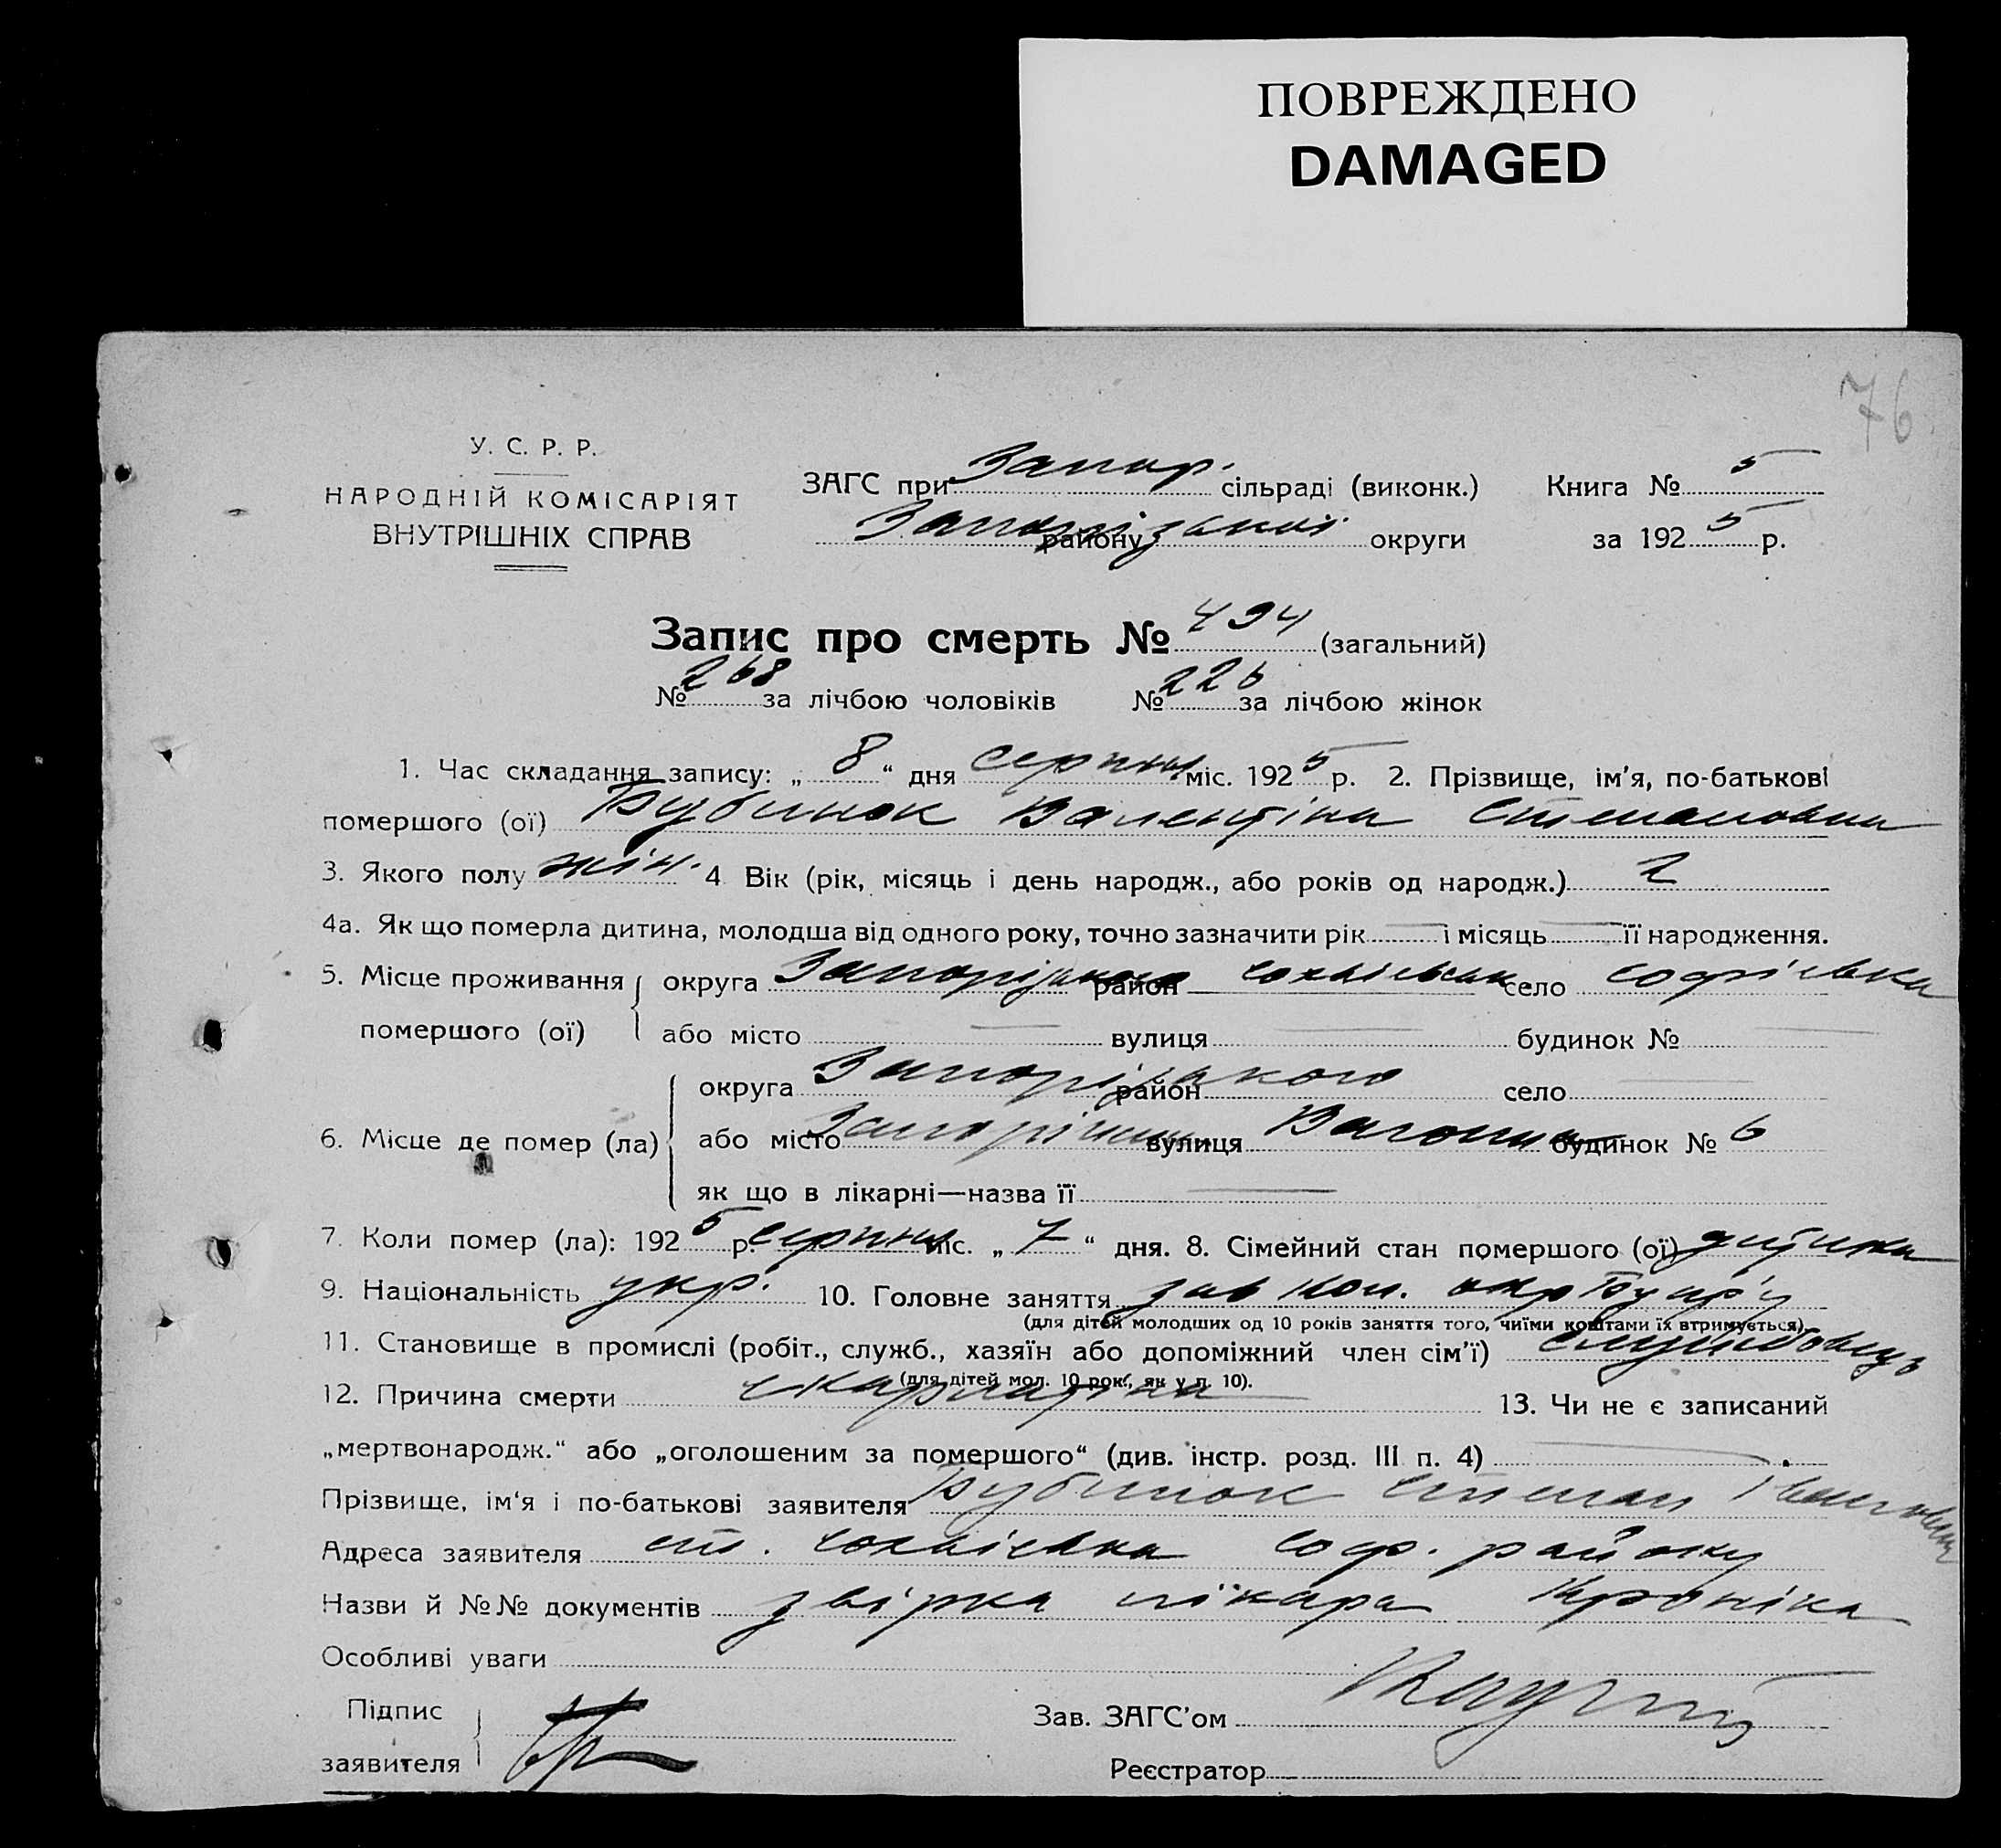 ПОВРЕЖДЕНО
DAMAGED
76
У. С. Р. Р.
НАРОДНІЙ КОМІСАРІЯТ
ВНУТРІШНІХ СПРАВ
ЗАГС при Запор. сільраді (виконк.) Книга № 5
Запорізької району округи за 1925 р.
Запис про смерть № 494 (загальний)
№ 268 за лічбою чоловіків № 226 за лічбою жінок
1. Час складання запису: „8“ дня серпня міс. 1925 р. 2. Прізвище, ім'я, по-батькові
помершого (ої) Бубинок Валентіна Степановна
3. Якого полу жін. 4 Вік (рік, місяць і день народж., або років од народж.) 2
4а. Як що померла дитина, молодша від одного року, точно зазначити рік — і місяць — її народження.
5. Місце проживання округа Запорізького район село Софієвка
помершого (ої) або місто — вулиця — будинок № —
округа Запорізького район село —
6. Місце де помер (ла) або місто Запоріжжя вулиця будинок № 6
як що в лікарні—назва її —
7. Коли помер (ла): 1925 р. серпня міс. „7“ дня. 8. Сімейний стан помершого (ої) дитина
9. Національність укр. 10. Головне заняття зав
(для дітей молодших од 10 років заняття того, чиїми коштами їх втримується)
11. Становище в промислі (робіт., служб., хазяїн або допоміжний член сім'ї) службовець
(для дітей мол. 10 рок., як у п. 10).
12. Причина смерти скарлатіна 13. Чи не є записаний
„мертвонародж.“ або „оголошеним за помершого“ (див. інстр. розд. III п. 4) —
Прізвище, ім'я і по-батькові заявителя Бубинок Степан Іванович
Адреса заявителя ст. Соф. району
Назви й №№ документів звірка лікара
Особливі уваги
Підпис
заявителя
Зав. ЗАГС'ом
Реєстратор